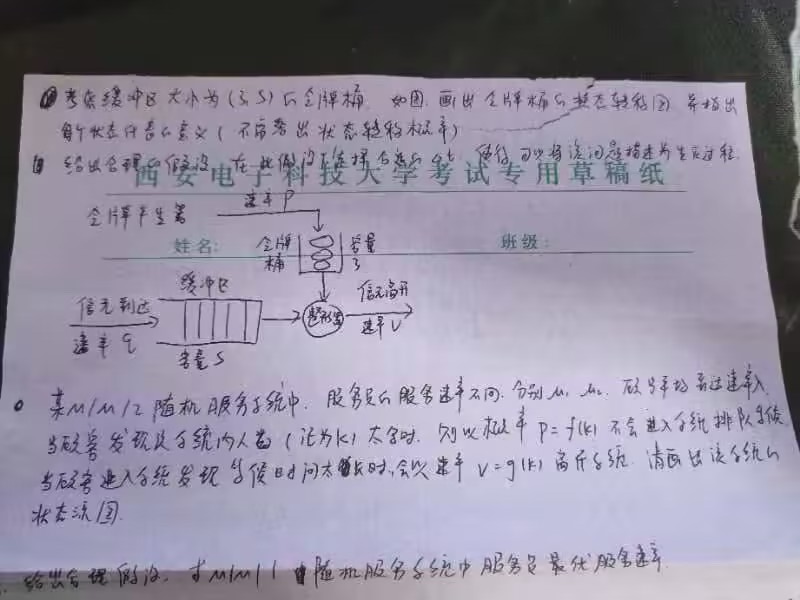 考虑缓冲区大小为(3,5)的令牌桶 如图 画出令牌桶的状态转移图 并指出
每个状态代表的意义(不需要出状态转移概率)
给出合理的假设 在此假设下选择合适的 使得可以将该问题描述为生灭过程
西安电子科技大学考试专用草稿纸
令牌产生器 速率P
姓名: 令牌桶 容量3 班级:
缓冲区
信元到达 整形器 信元离开
速率q 速率V
容量S
某M/M/2随机服务系统中, 服务员的服务速率不同,分别μ₁ μ₂. 顾客平均到达速率λ
当顾客发现该系统内人数(记为k)太多时,则以概率P=f(k)不会进入系统排队等候
当顾客进入系统发现等候时间太长时,会以速率v=g(k)离开系统.请画出该系统的
状态流图.
给出合理假设, 求M/M/1随机服务系统中服务员最优服务速率